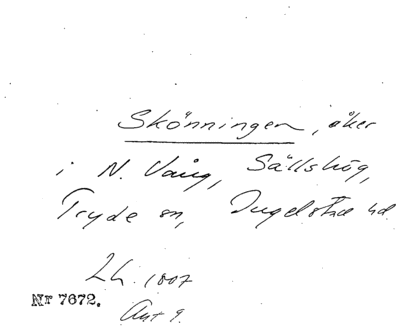 Skönningen, åker
i N. Vång, Sällshög,
Tryde sn, Ingelstad hd
Lh. 1807
Nr 7672.
Akt 9.